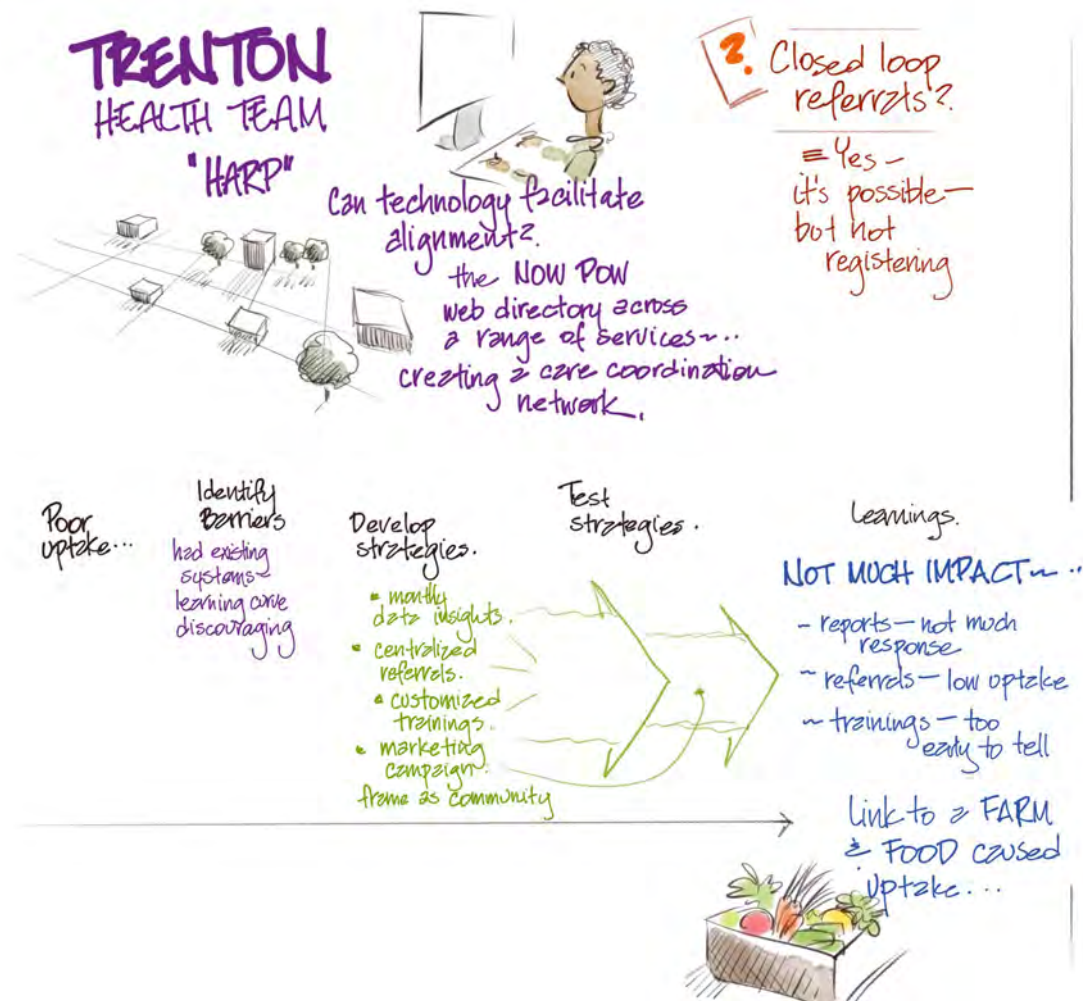 TRENTON
HEALTH TEAM
"HARP"
Can technology facilitate
alignment?
the NOW POW
web directory across
a range of services~..
creating a care coordination
network.
?
Closed loop
referrals?
= Yes –
it's possible –
but not
registering
Poor
uptake...
Identify
Barriers
had existing
systems~
learning curve
discouraging
Develop
strategies.
• monthly
data insights.
• centralized
referrals.
• customized
trainings.
• marketing
campaign.
frame as community
Test
strategies.
Learnings.
NOT MUCH IMPACT~..
~ reports – not much
response
~ referrals – low uptake
~ trainings – too
early to tell
Link to a FARM
& FOOD caused
uptake...